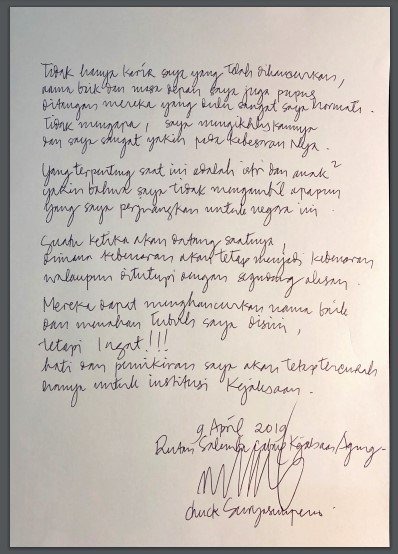 Tidak hanya karir saya yang telah dihancurkan,
nama baik dan masa depan saya juga pupus
ditangan mereka yang dulu sangat saya hormati.
Tidak mengapa, saya mengikhlaskannya
dan saya sangat yakin pada kebesaran Nya.
Yang terpenting saat ini adalah istri dan anak²
yakin bahwa saya tidak mengambil apapun
yang saya perjuangkan untuk negara ini.
Suatu ketika akan datang saatnya,
dimana kebenaran akan tetap menjadi kebenaran
walaupun ditutupi dengan segudang alasan.
Mereka dapat menghancurkan nama baik
dan menahan tubuh saya disini,
tetapi Ingat!!!
hati dan pemikiran saya akan tetap tercurah
hanya untuk institusi Kejaksaan.
9 April 2019
Rutan Salemba Cabang Kejaksaan Agung
Chuck Suryosumpeno